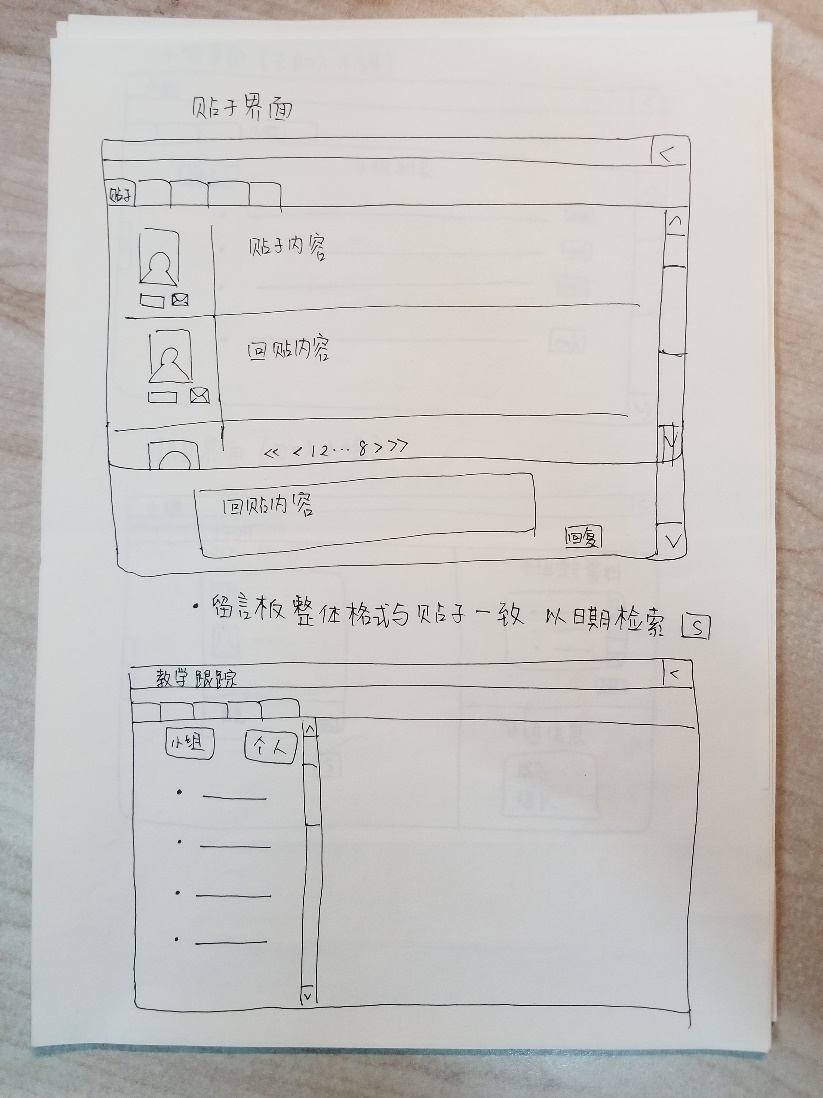 贴子界面
<
贴子
贴子内容
回贴内容
<< < 1 2 … 8 > >>
回贴内容
回复
· 留言板整体格式与贴子一致 以日期检索 S
教学跟踪
<
小组 个人